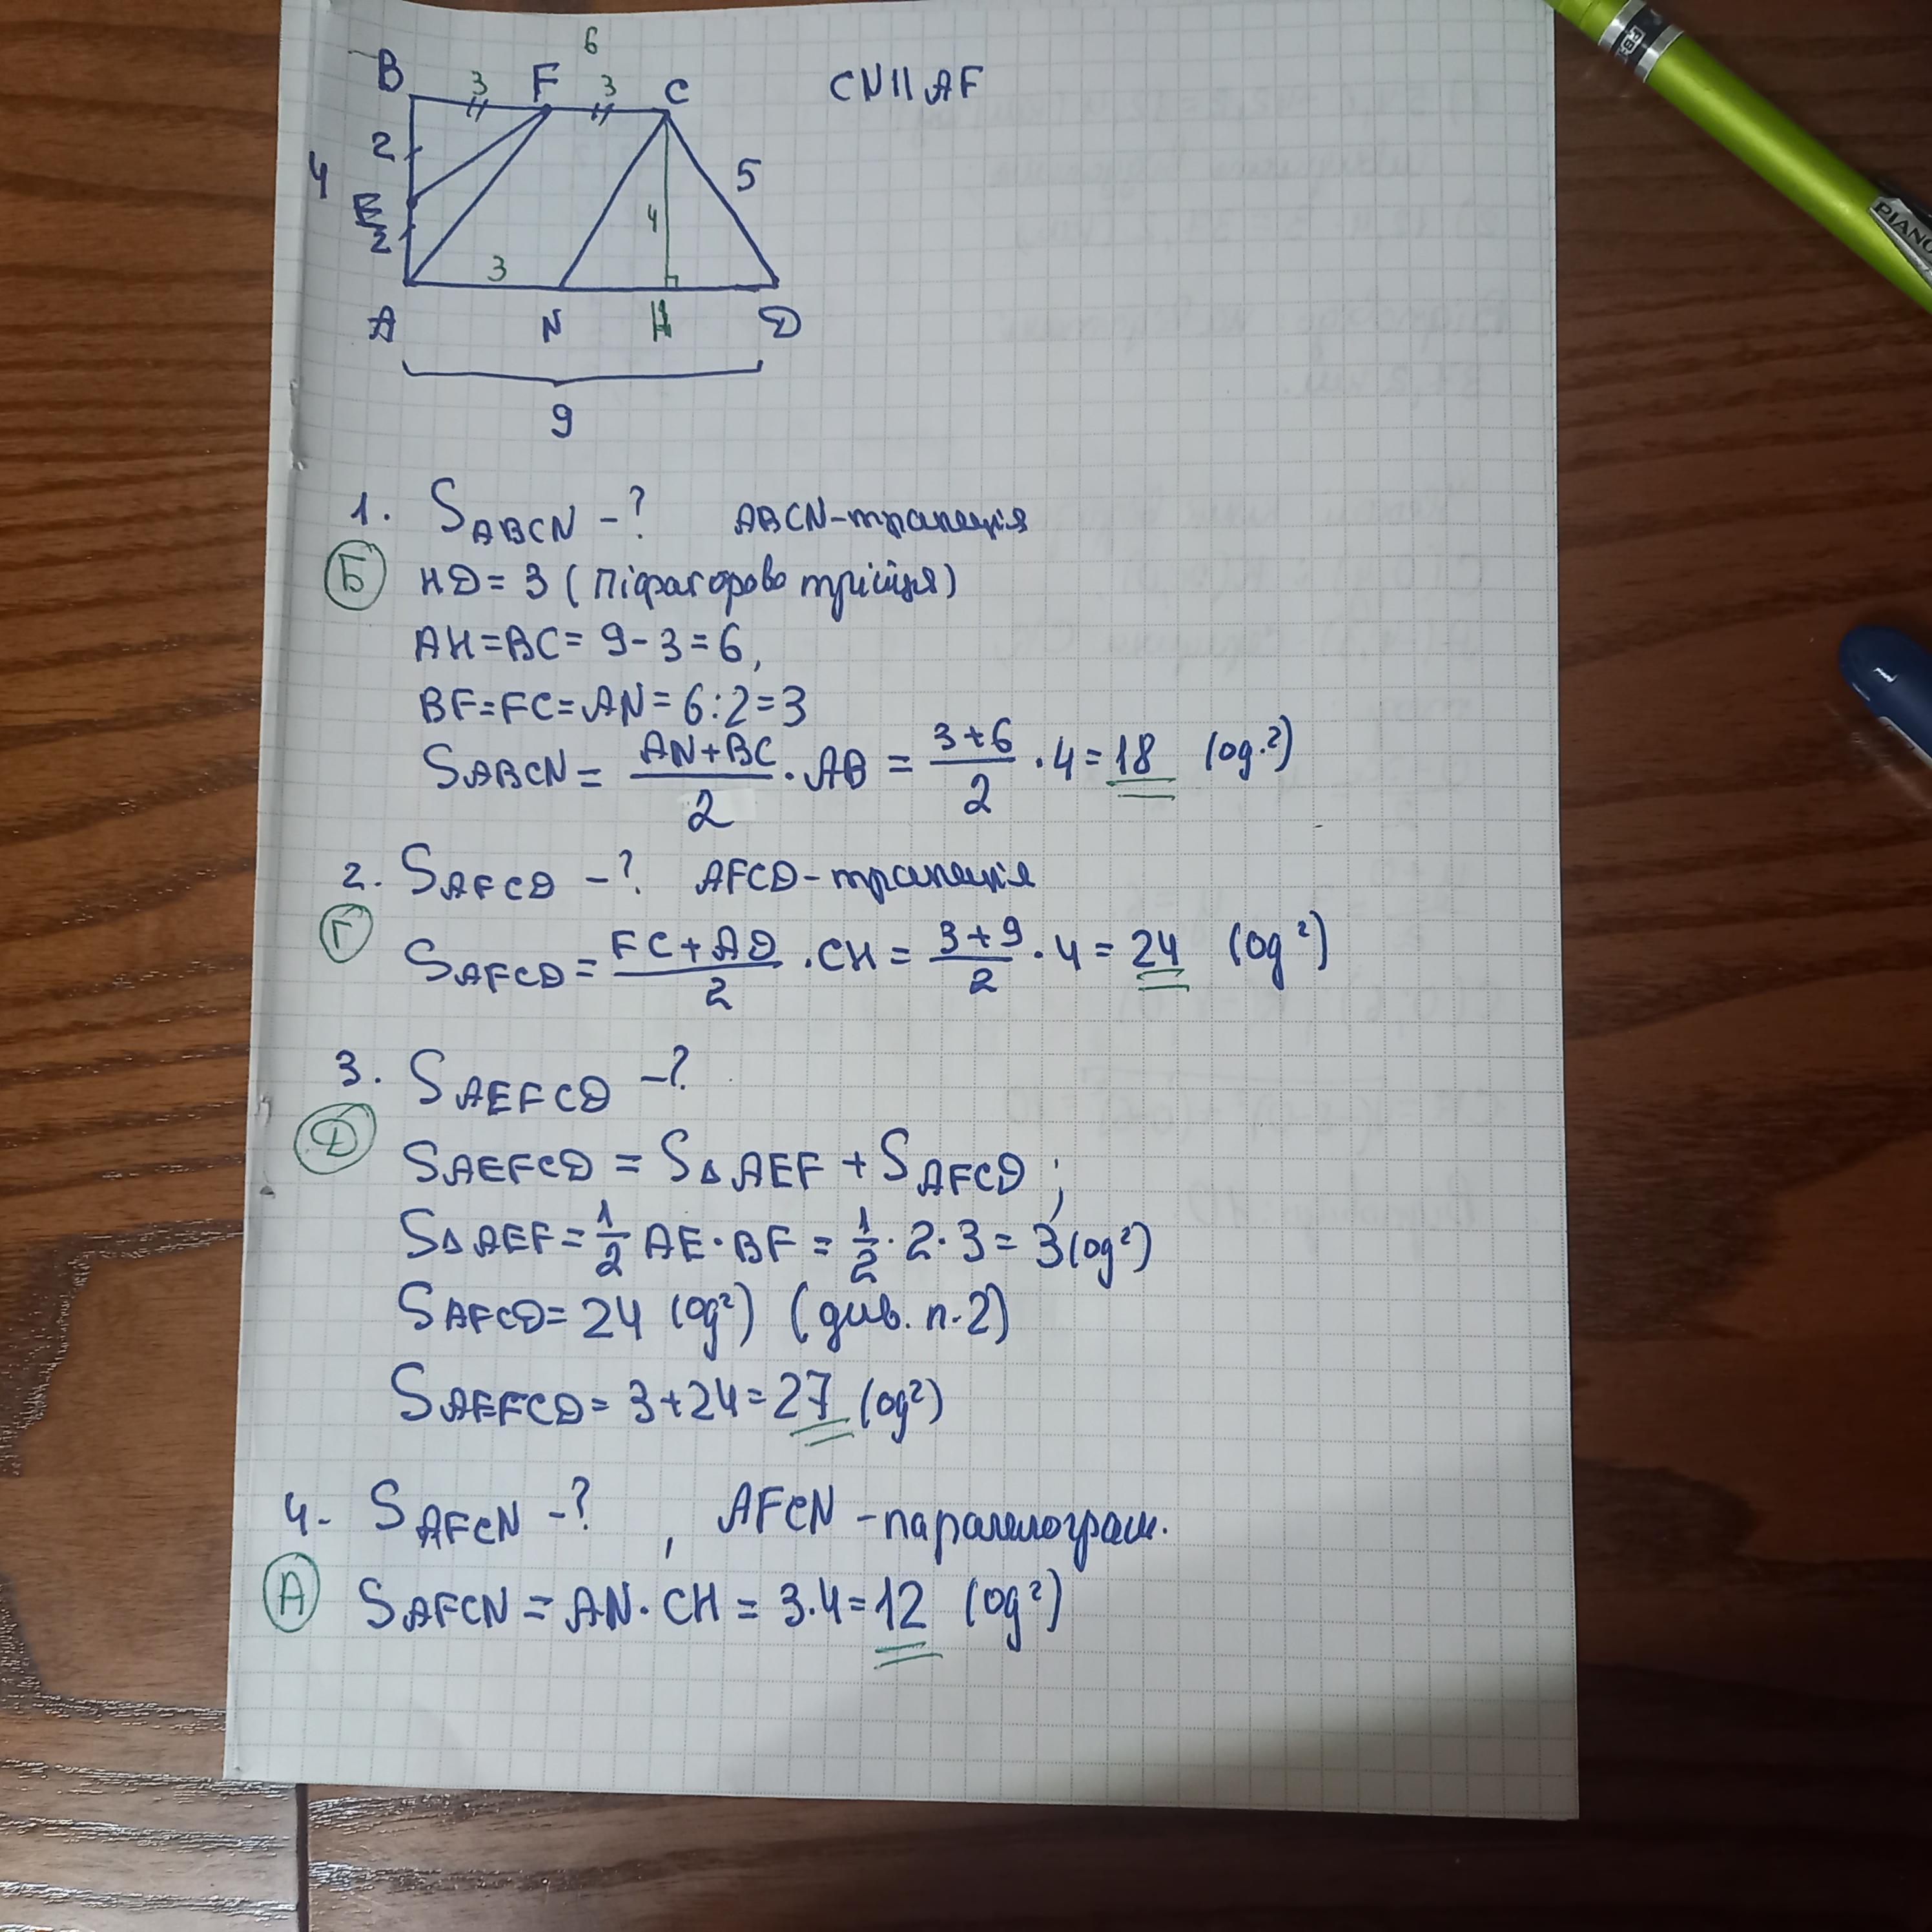 6
B 3 F 3 C CN || AF
2
4 5
E 4
2
3
A N H D
9
1. S ABCN - ? ABCN - трапеція
Б HD = 3 (Піфагорова трійця)
AH = BC = 9 - 3 = 6,
BF = FC = AN = 6 : 2 = 3
S ABCN = (AN + BC)/2 · AB = (3 + 6)/2 · 4 = 18 (од.²)
2. S AFCD - ? AFCD - трапеція
Г S AFCD = (FC + AD)/2 · CH = (3 + 9)/2 · 4 = 24 (од²)
3. S AEFCD - ?
Д S AEFCD = S Δ AEF + S AFCD ;
S Δ AEF = 1/2 AE · BF = 1/2 · 2 · 3 = 3 (од²)
S AFCD = 24 (од²) (див. п. 2)
S AEFCD = 3 + 24 = 27 (од²)
4. S AFCN - ? , AFCN - паралелограм.
А S AFCN = AN · CH = 3 · 4 = 12 (од²)
PIANO